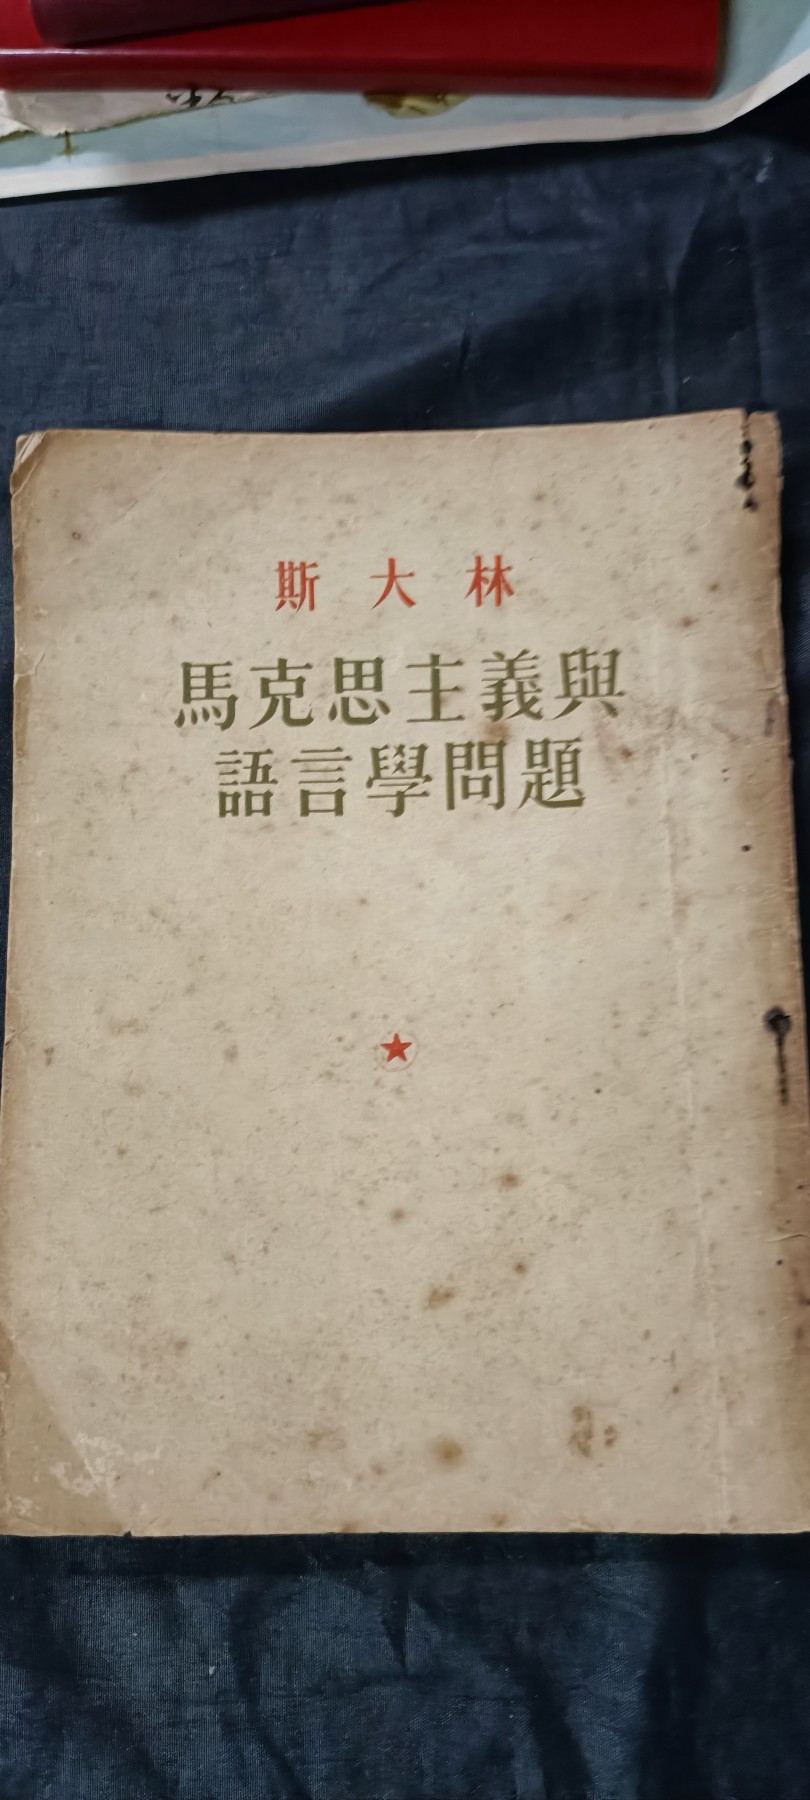 斯大林
馬克思主義與
語言學問題